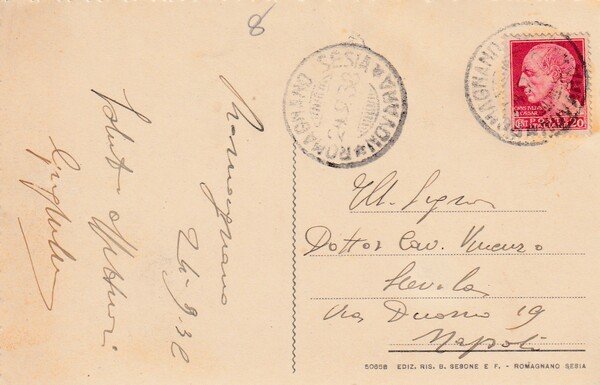 8
Romagnano
24-9-32
Saluti affettuosi
ROMAGNANO SESIA * NOVARA *
ROMAGNANO
CAIVS IVLIVS
CAESAR
CENT. 20
Ill. Signor
Dottor Cav. Vincenzo
Scevola
Via Duomo 19
Napoli
50658 EDIZ. RIS. B. SESONE E F. - ROMAGNANO SESIA